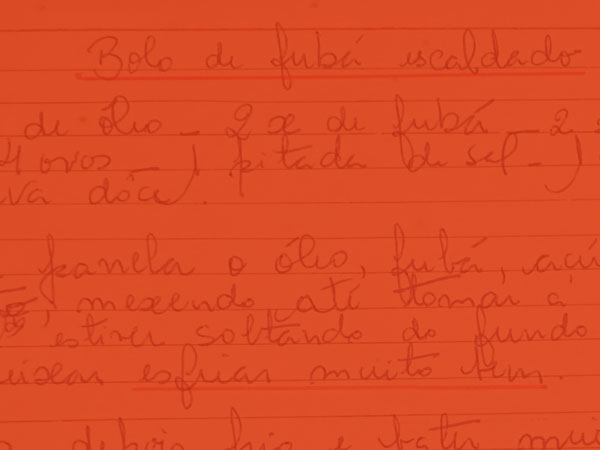 Bolo de fubá escaldado
de óleo - 2 x de fubá - 2
4 ovos - 1 pitada de sal - 1
va doce.
panela o óleo, fubá, açú
mexendo até tomar a
estiver soltando do fundo
eixar esfriar muito bem.
depois frio e bater mui